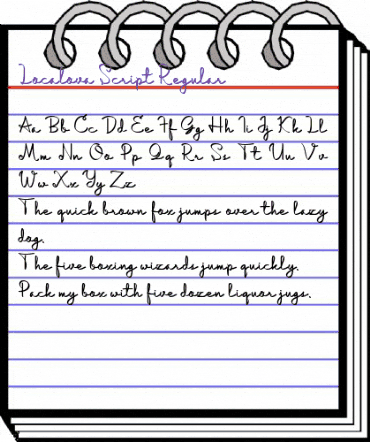 Localova Script Regular
Aa Bb Cc Dd Ee Ff Gg Hh Ii Jj Kk Ll
Mm Nn Oo Pp Qq Rr Ss Tt Uu Vv
Ww Xx Yy Zz
The quick brown fox jumps over the lazy
dog.
The five boxing wizards jump quickly.
Pack my box with five dozen liquor jugs.